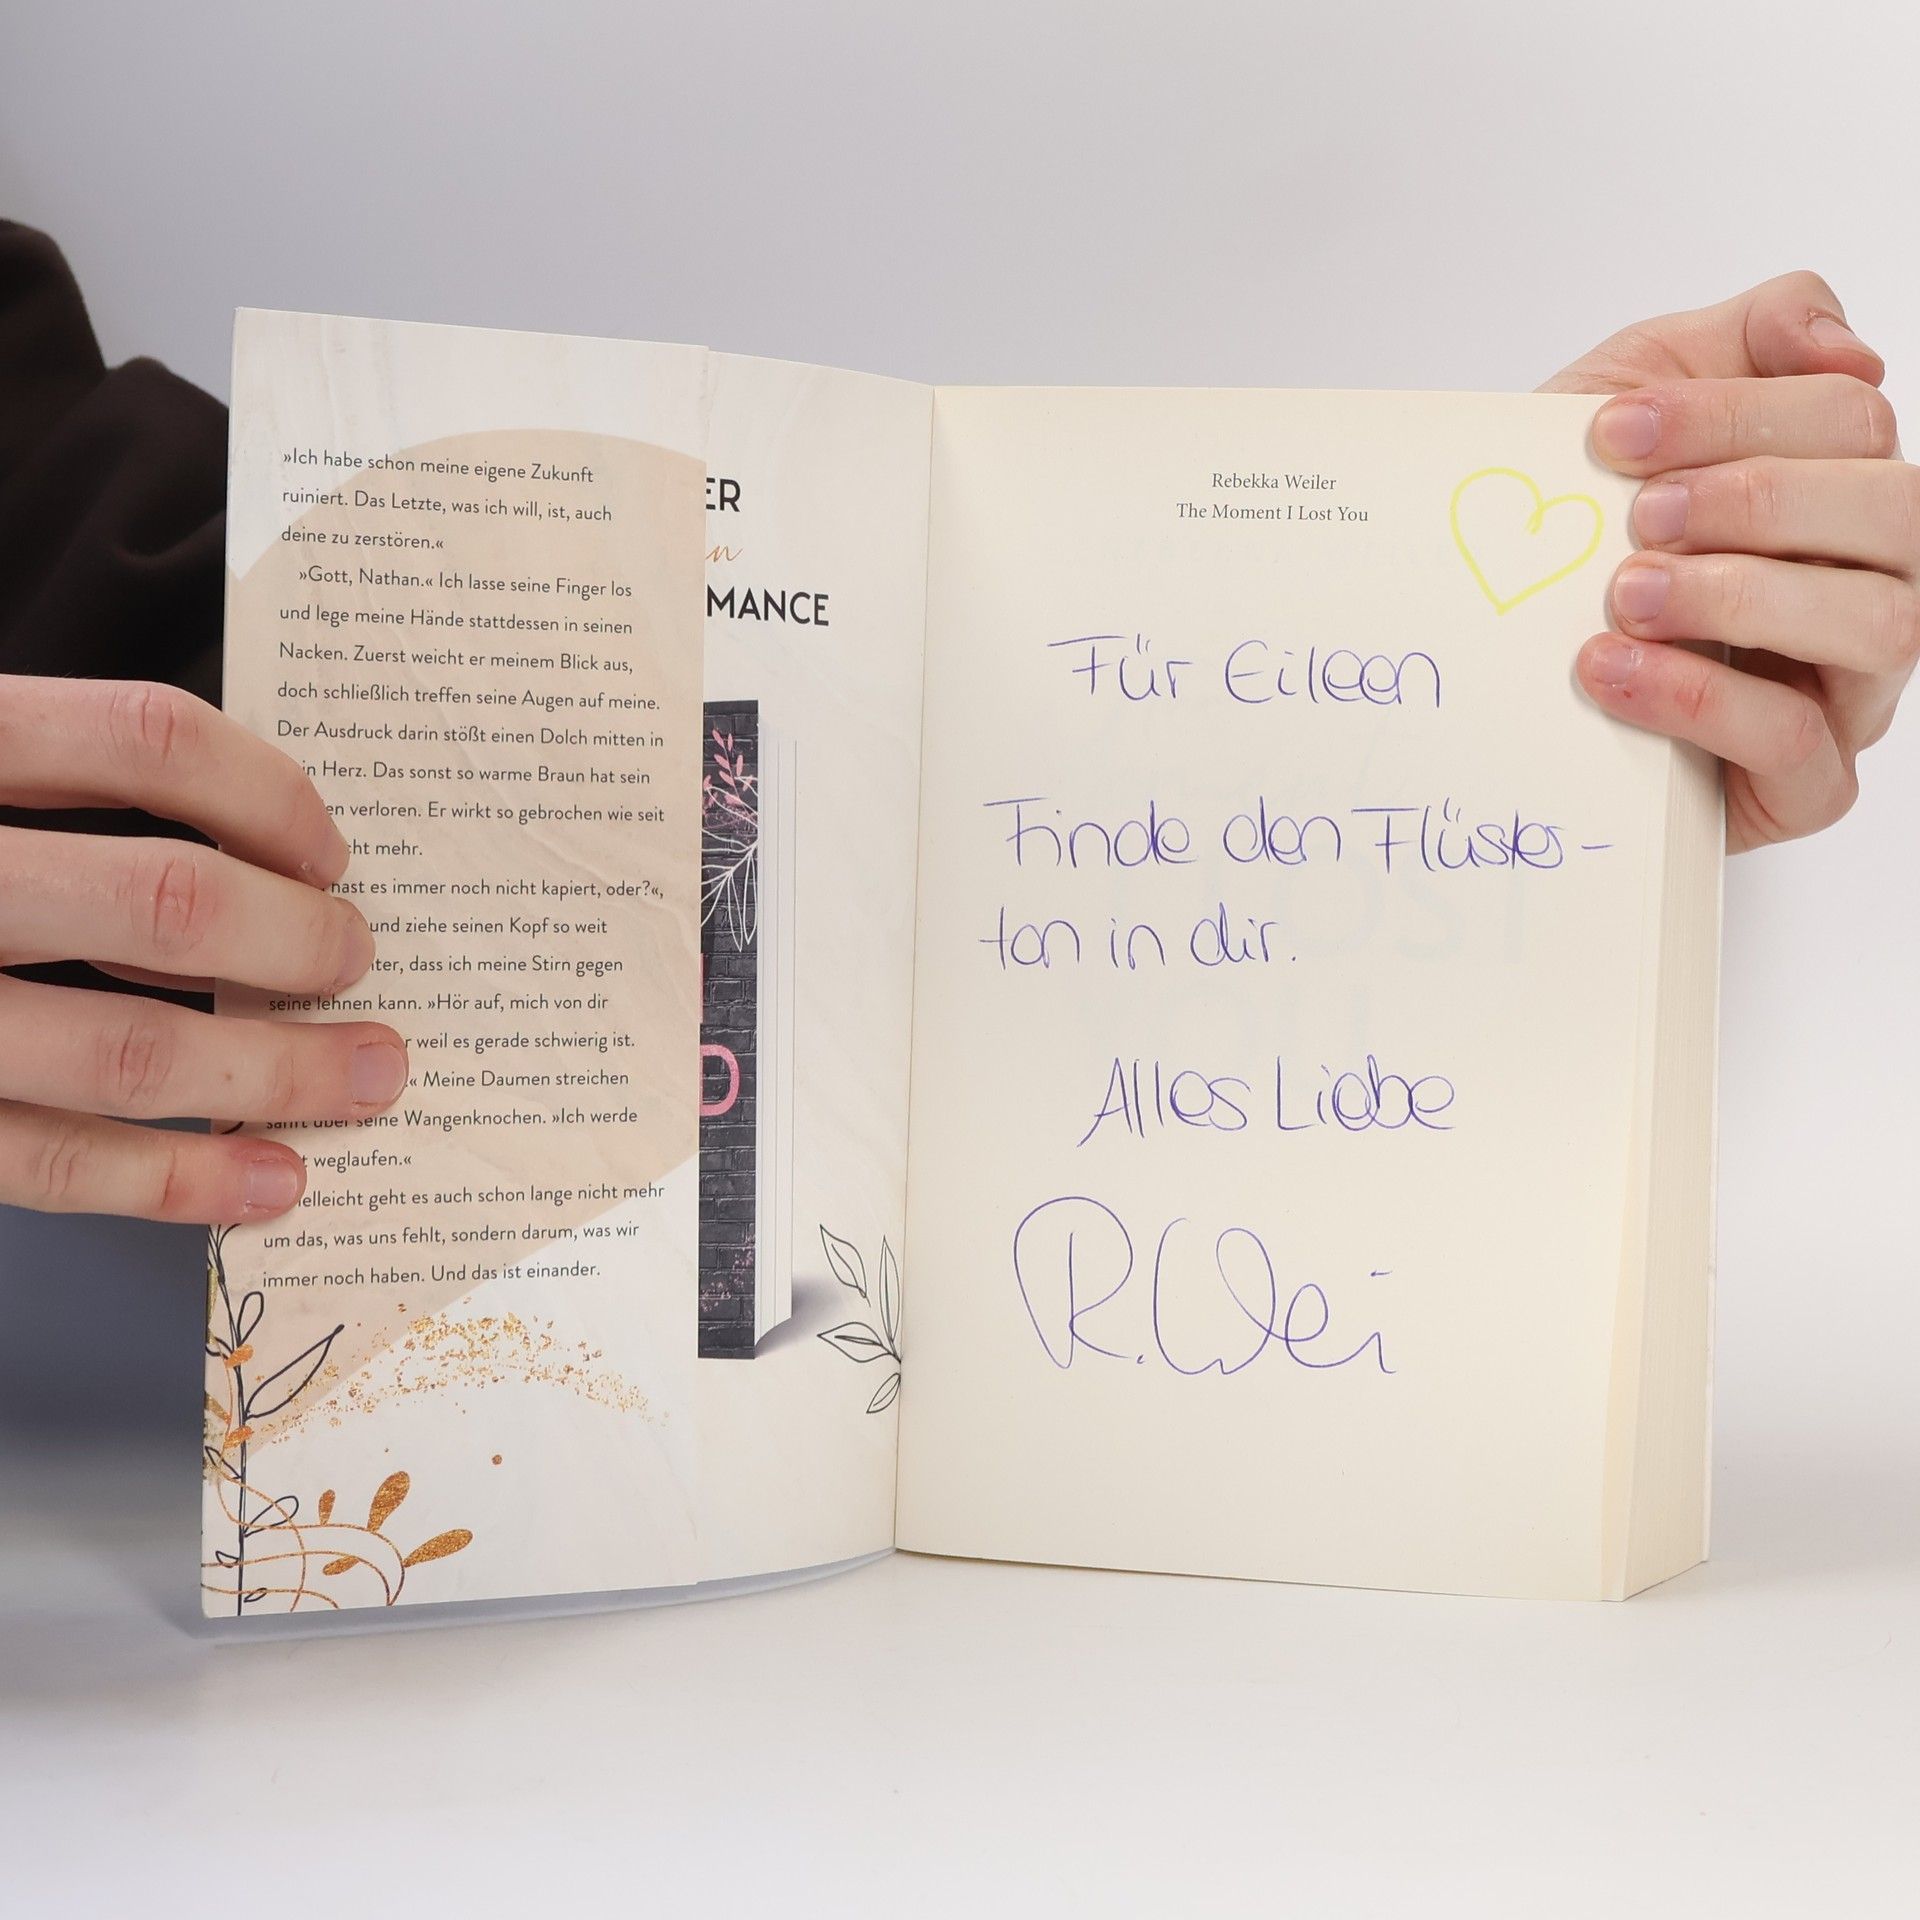 »Ich habe schon meine eigene Zukunft
ruiniert. Das Letzte, was ich will, ist, auch
deine zu zerstören.«
»Gott, Nathan.« Ich lasse seine Finger los
und lege meine Hände stattdessen in seinen
Nacken. Zuerst weicht er meinem Blick aus,
doch schließlich treffen seine Augen auf meine.
Der Ausdruck darin stößt einen Dolch mitten in
Herz. Das sonst so warme Braun hat sein
verloren. Er wirkt so gebrochen wie seit
mehr.
hast es immer noch nicht kapiert, oder?«,
und ziehe seinen Kopf so weit
dass ich meine Stirn gegen
seine lehnen kann. »Hör auf, mich von dir
weil es gerade schwierig ist.
Meine Daumen streichen
sanft über seine Wangenknochen. »Ich werde
weglaufen.«
Vielleicht geht es auch schon lange nicht mehr
um das, was uns fehlt, sondern darum, was wir
immer noch haben. Und das ist einander.
ER
MANCE
D
Rebekka Weiler
The Moment I Lost You
Für Eileen
Finde den Flüster-
ton in dir.
Alles Liebe
R. Wei